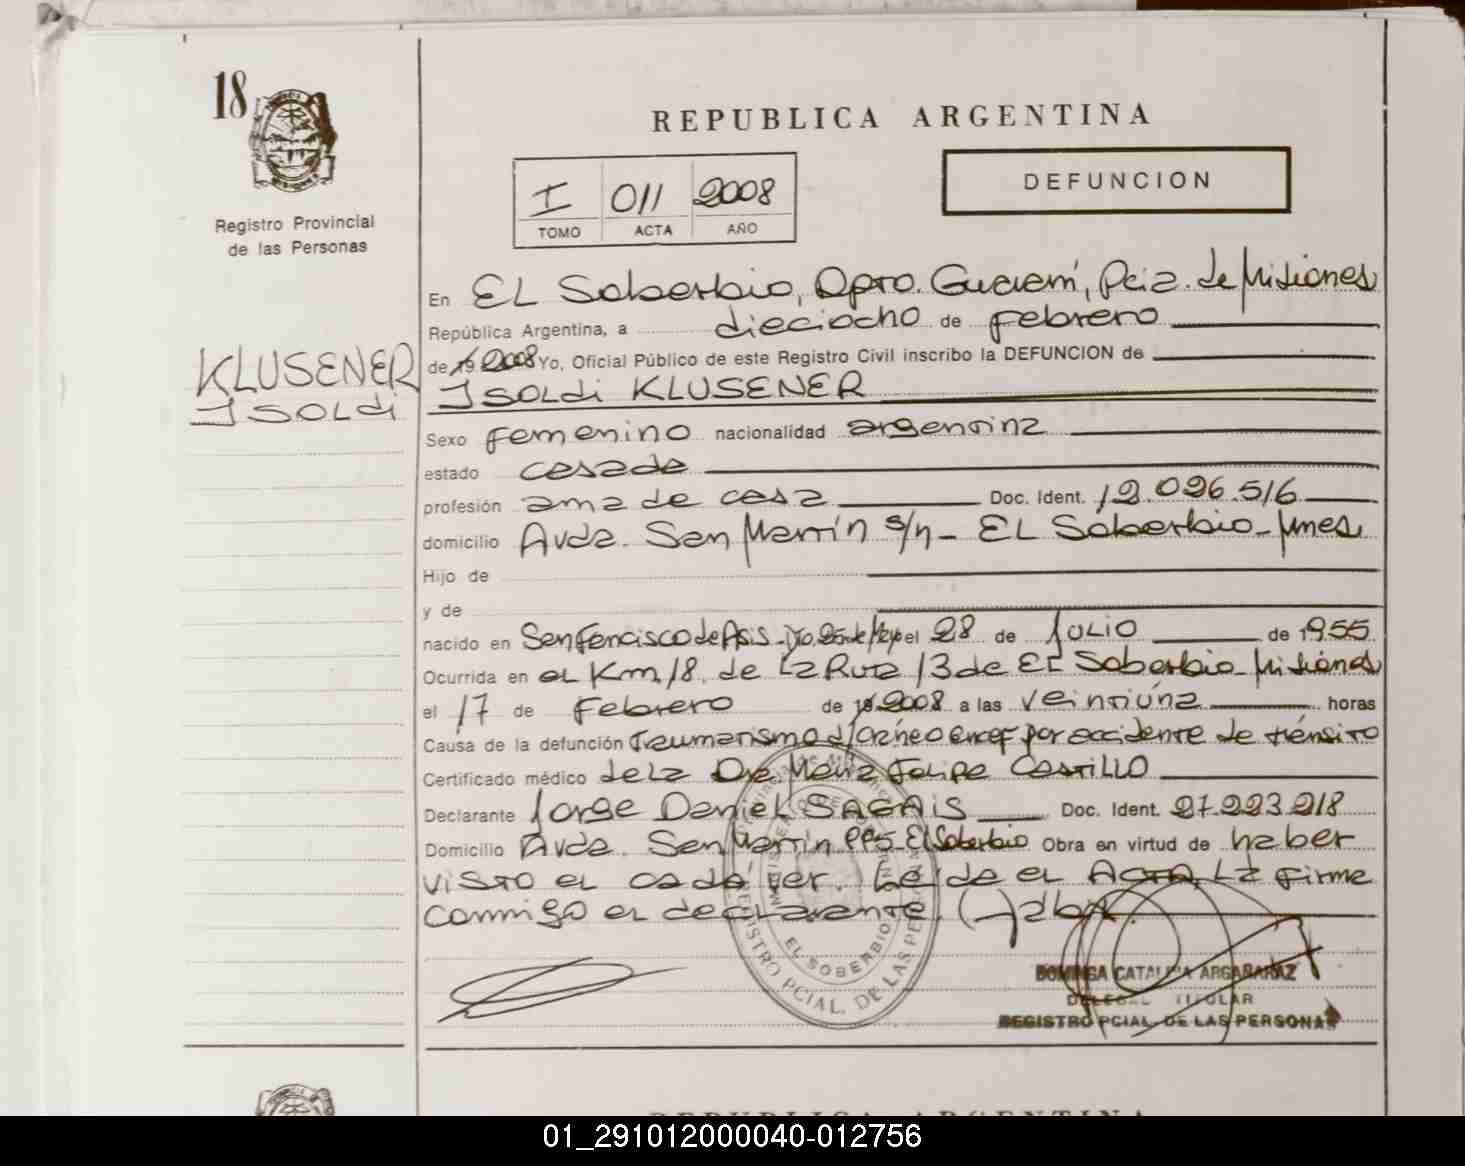 18
REPUBLICA ARGENTINA
I 011 2008
TOMO ACTA AÑO
DEFUNCION
Registro Provincial
de las Personas
KLUSENER
Isoldi
En El Soberbio, Dpto. Guaraní, Pcia. de Misiones
República Argentina, a dieciocho de febrero
de 19 2008 Yo, Oficial Público de este Registro Civil inscribo la DEFUNCION de
Isoldi KLUSENER
Sexo femenino nacionalidad argentina
estado casada
profesión ama de casa Doc. Ident. 12.026.516
domicilio Avda. San Martín s/n - El Soberbio - Mnes
Hijo de
y de
nacido en San Francisco de Asis - Dto. 25 de May el 28 de Julio de 1955
Ocurrida en el Km. 18. de la Ruta 13 de El Soberbio - Misiones
el 17 de Febrero de 19 2008 a las veintiúna horas
Causa de la defunción Traumatismo d/cráneo encef por accidente de tránsito
Certificado médico de la Dra. María Felipa Castillo
Declarante Jorge Daniel SAGAIS Doc. Ident. 27.223.218
Domicilio Avda. San Martín PP5 - El Soberbio Obra en virtud de haber
visto el cadáver. Leída el Acta, la firma
conmigo el declarante. (-)
EL SOBERBIO
REGISTRO PCIAL. DE LAS PERSONAS
DOMINGA CATALINA ARGAÑARAZ
DELEGAD TITULAR
REGISTRO PCIAL. DE LAS PERSONAS
REPUBLICA ARGENTINA
01_291012000040-012756